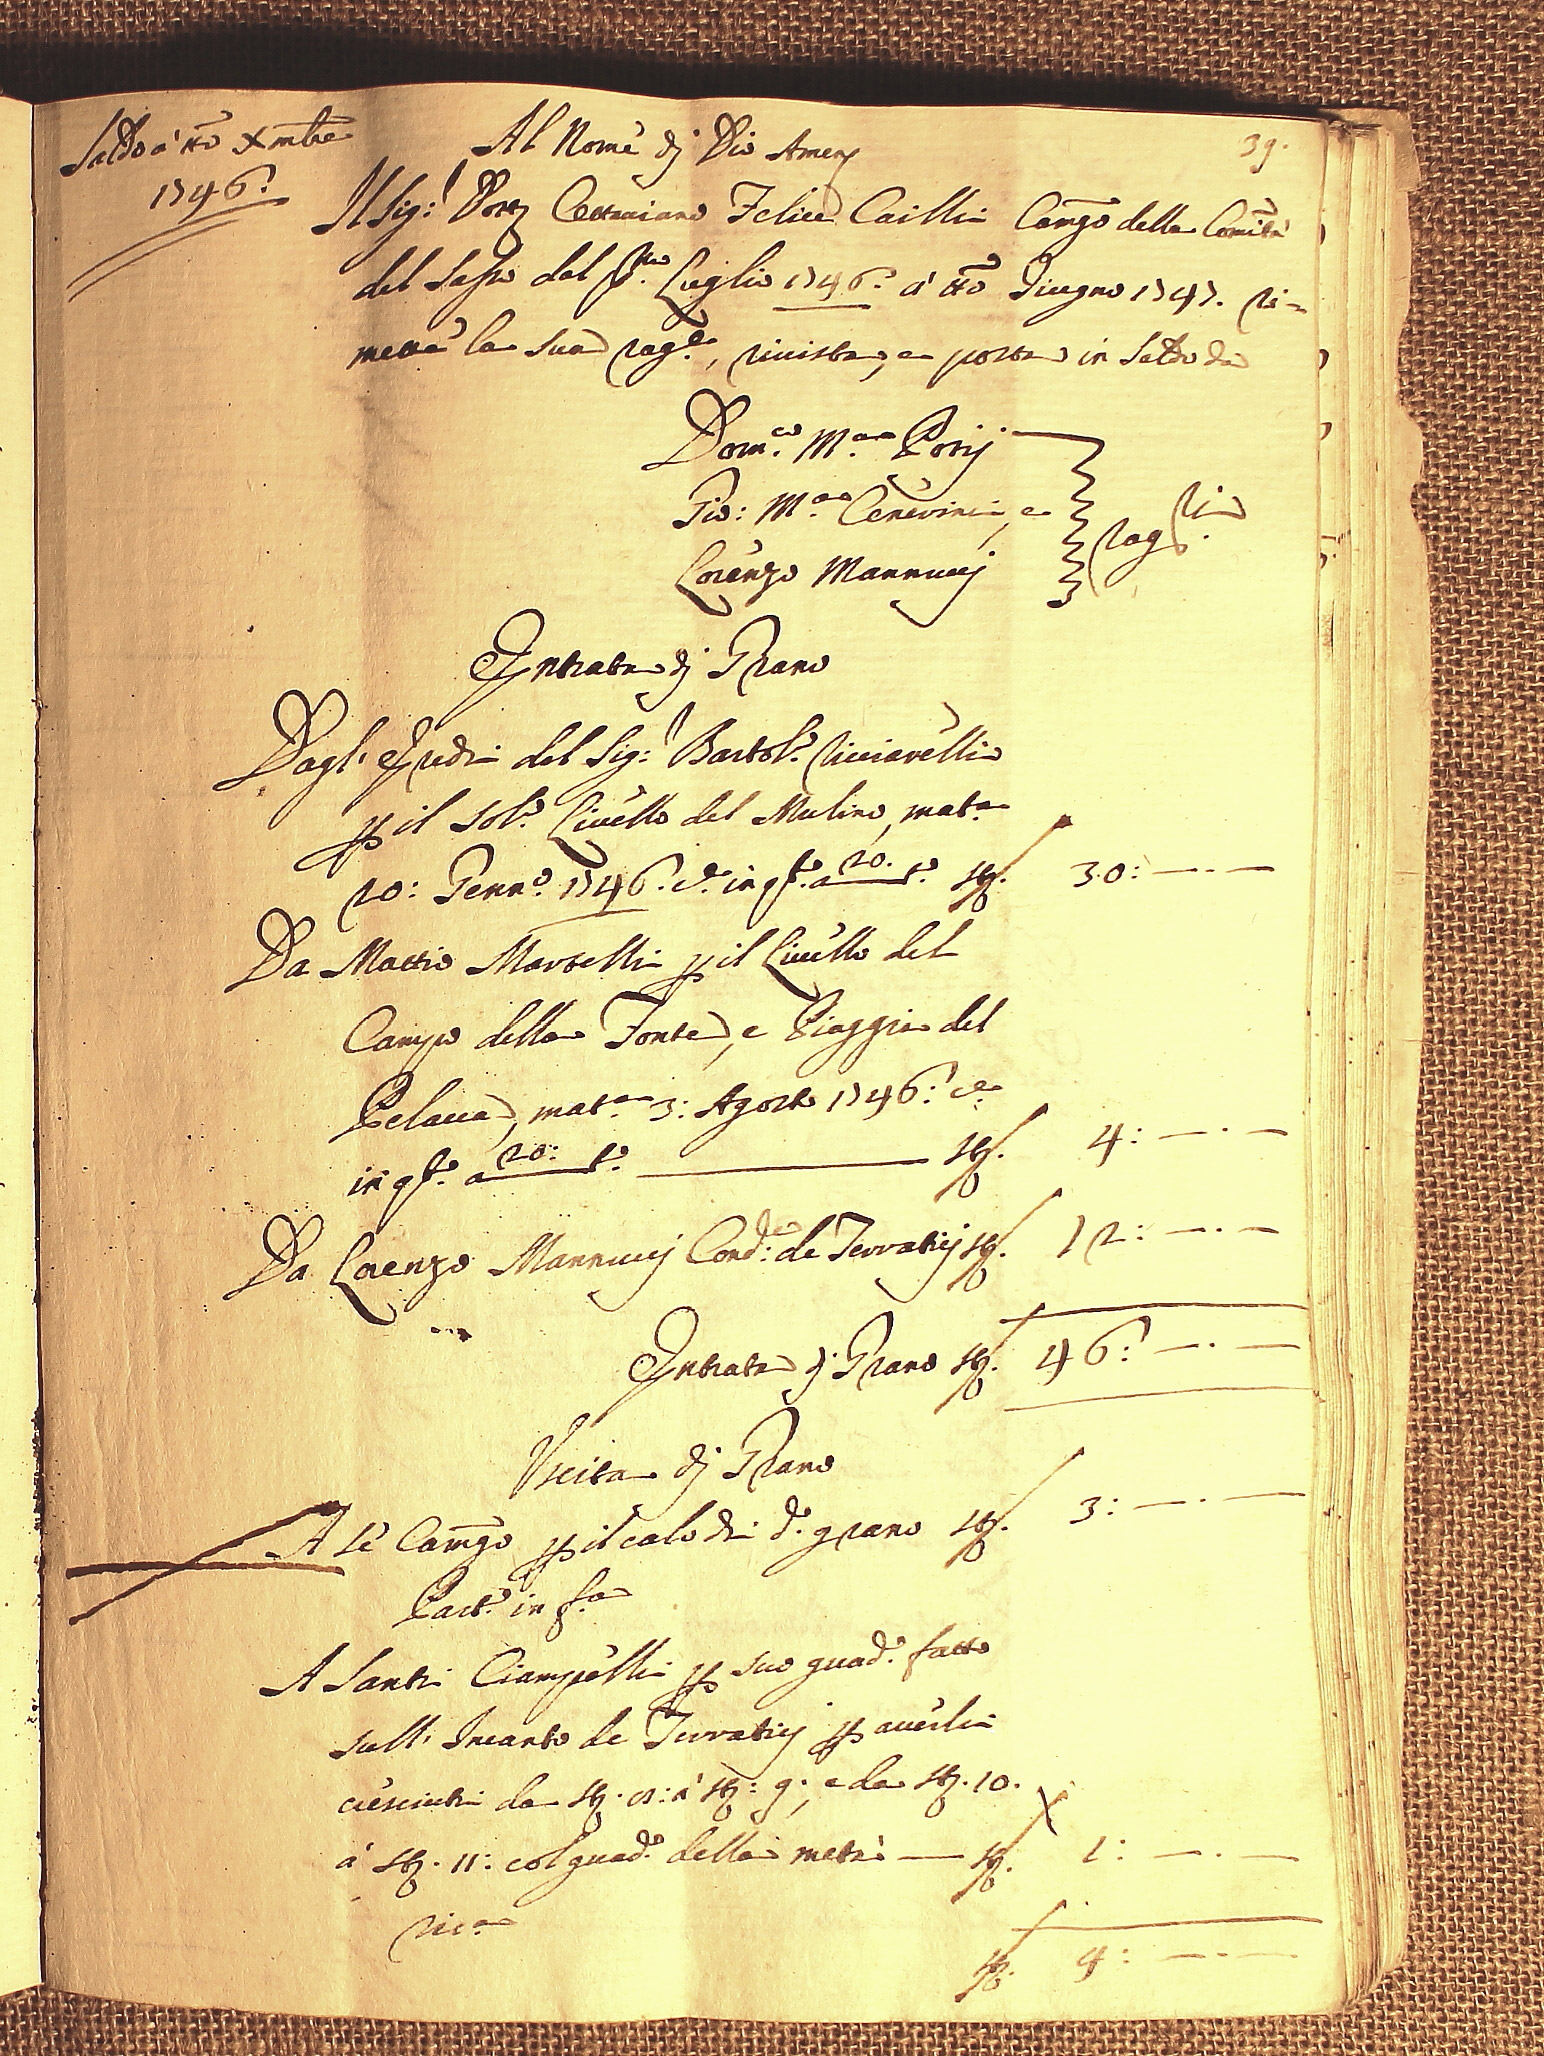 Saldo a tto Xmbre
1746.
Al Nome di Dio Amen
39.
Il Sig:r Dott Ottaviano Felice Cailli Camgo della Comità
del Sasso dal p.mo Luglio 1746. a' tto Giugno 1747. ri=
mette la sua rag.e, rivista, e posta in Saldo da
Dom.co M.a Porij
Gio: M.a Cenerini, e
Lorenzo Mannucij
rag.ri
Entrata di Grano
Dagl' Eredi del Sig:r Bartol.o Ricciarelli
p il sol.o Livello del Mulino, mat.a
20: Genn.o 1746. c.e in q.o a 20. t.o st. 30: —.—
Da Mattio Martelli p il Livello del
Campo della Fonte, e Piaggia del
Pelaca, mat.a 3: Agosto 1746: c.e
in q.o a 20: t.o — st. 4: —.—
Da Lorenzo Mannucij Cond.e de Terratici st. 12: —.—
Entrata di Grano st. 46: —.—
Uscita di Grano
A se Camgo p il calo di d.o grano st. 3: —.—
Part.o in f.a
A Santi Ciampelli p suo guad.o fatto
sull' Incanto de Terratici p averli
cresciuti da st. 8: a' st: 9:, e da st. 10.
a' st. 11: col guad.o della metà — st. 1: —.—
st. 4: —.—